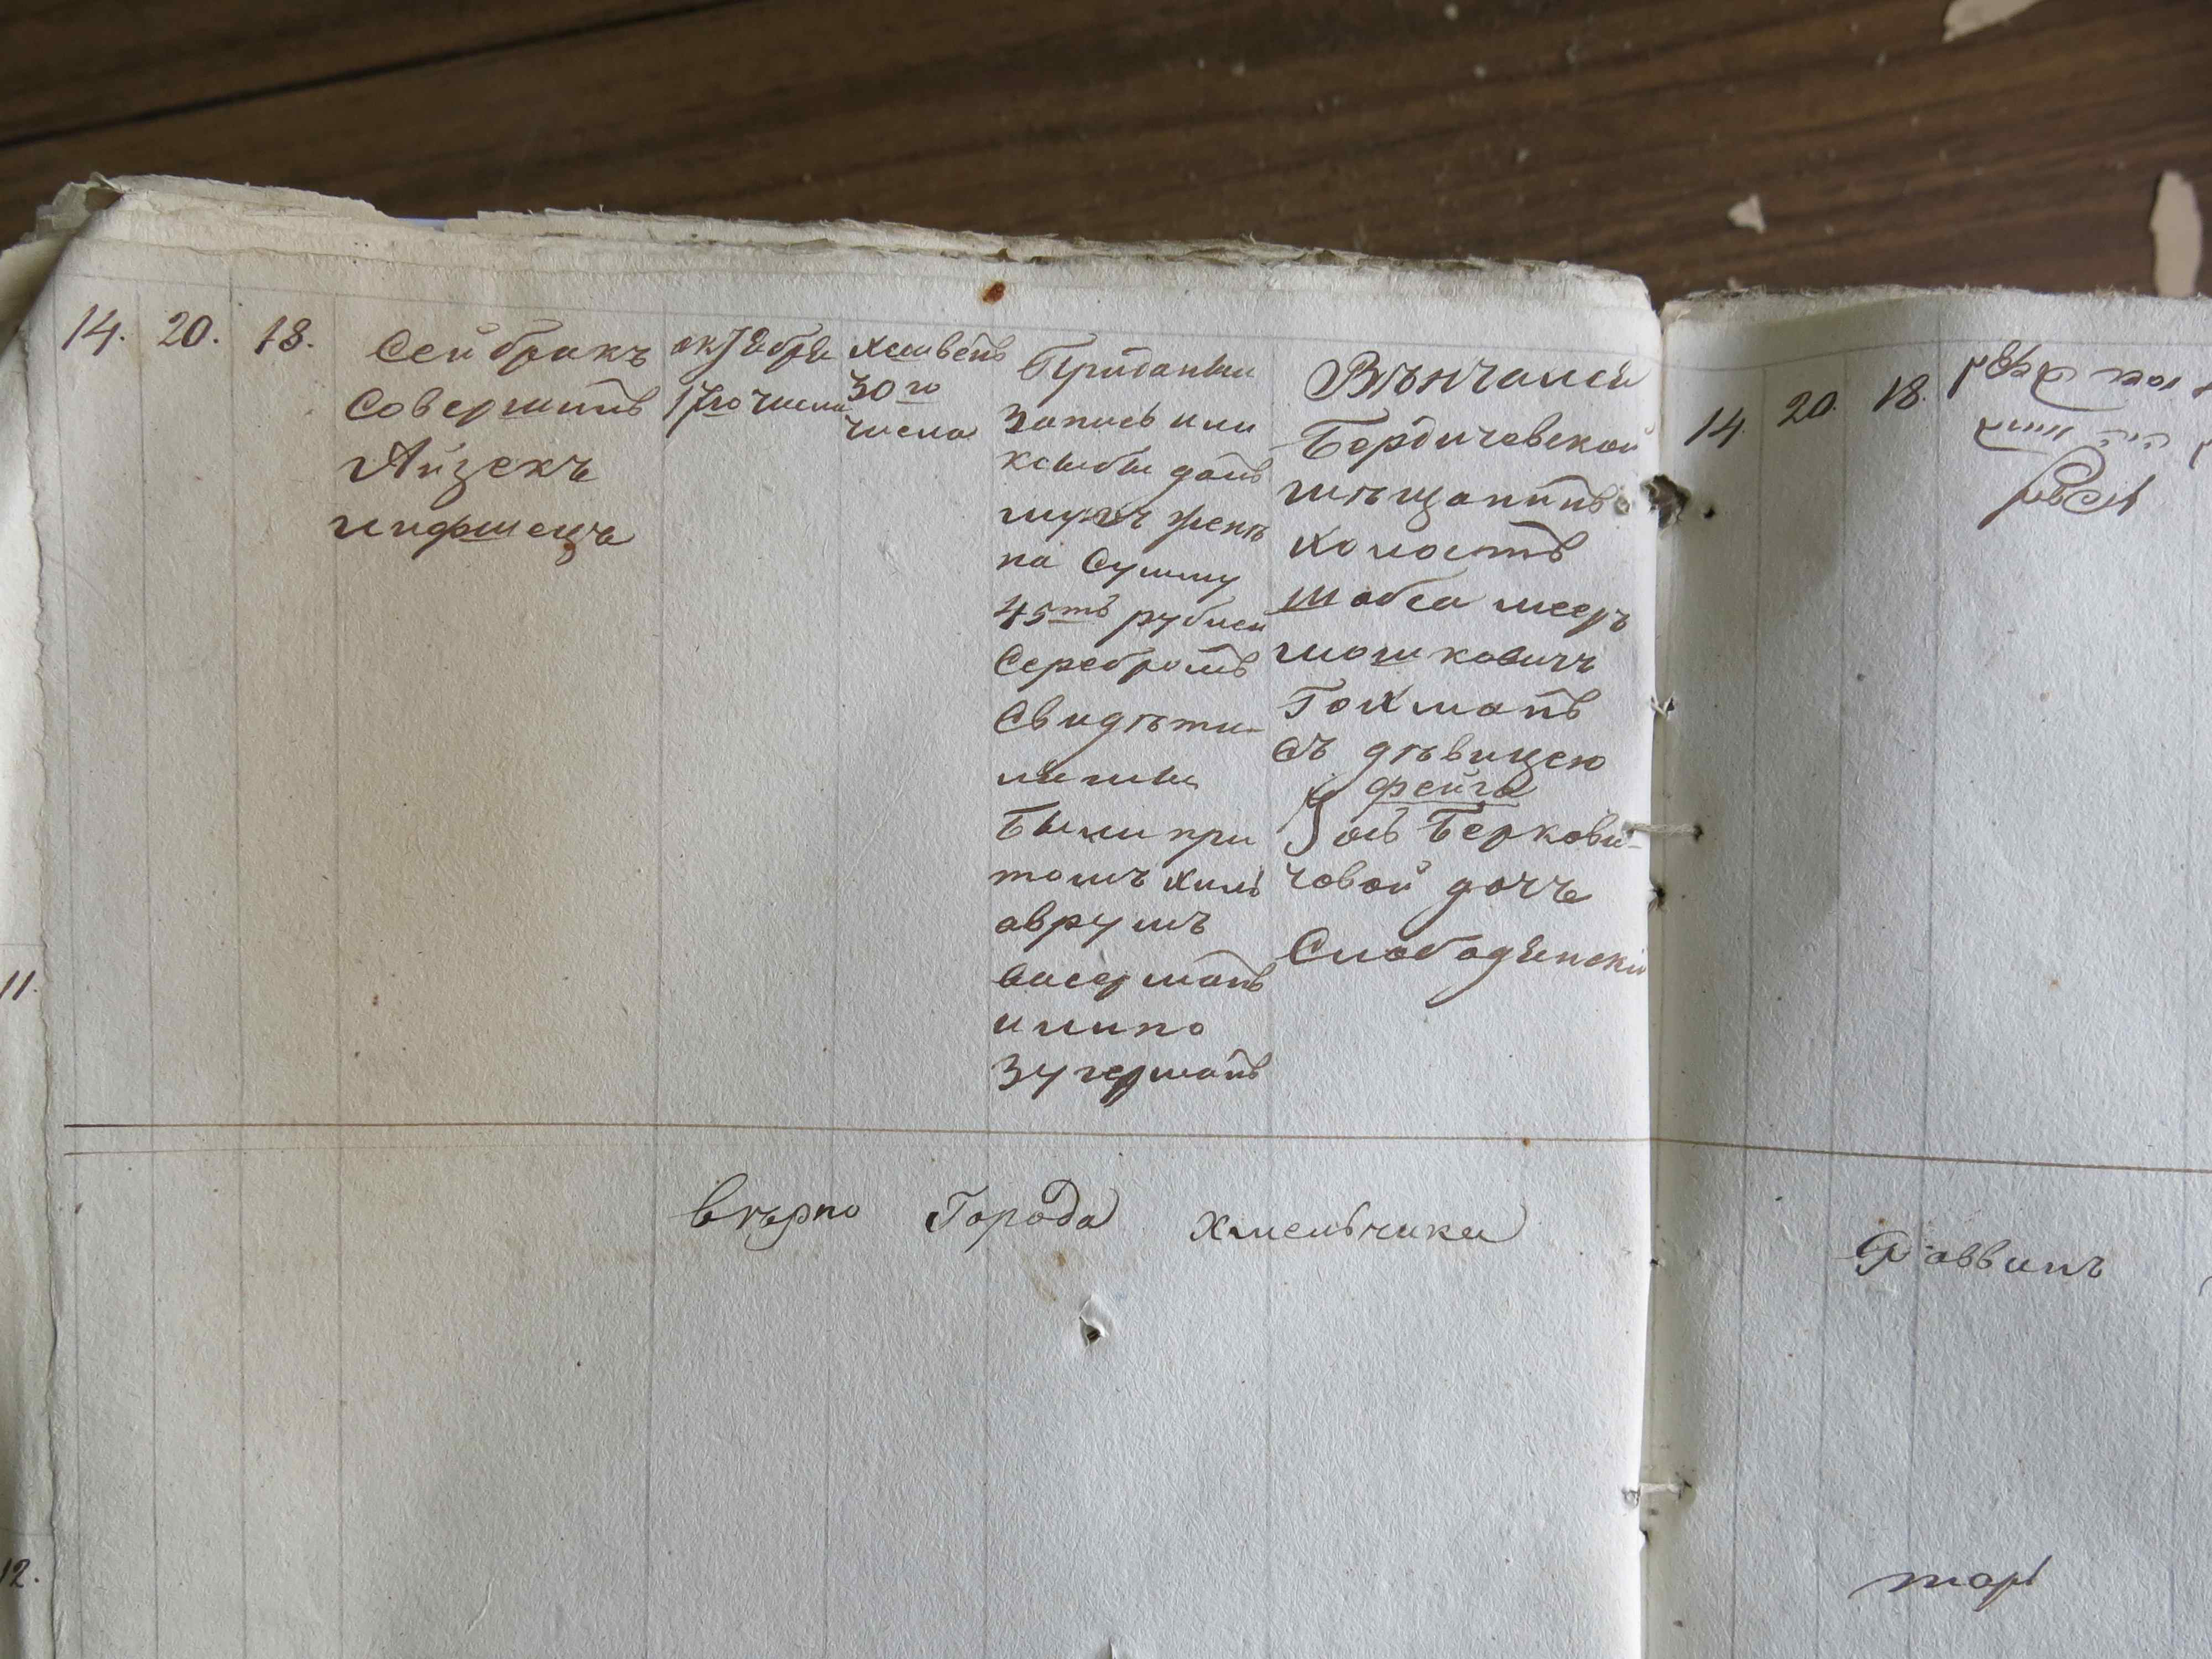 14. 20. 18.
Сей бракъ
Совершилъ
Айзекъ
лифшецъ
октября
17го числа
хешвенъ
30го
числа
Приданыи
Запись или
ксыбы данъ
мужъ женѣ
на Сумму
45ть рублей
Серебромъ
Свидѣти-
лями
Были при
томъ хиль
аврумъ
васерманъ
илипо
Зугерманъ
Вѣнчался
Бердичевской
мѣщанинъ
холостъ
шабса мееръ
мошковичъ
Гохманъ
Съ дѣвицею
фейга
Беркови-
човой дочь
Слободянскій
11.
вѣрно Города Хмельника
12.
14. 20. 18.
Раввинъ